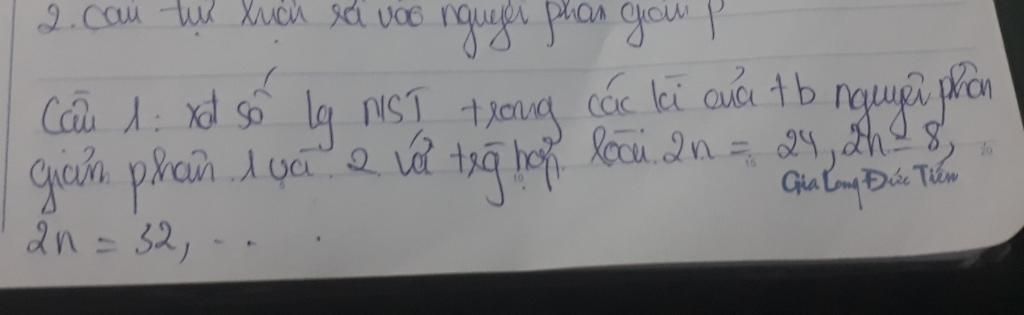 2. Cấu trúc
vào nguyên phân giảm p
Câu 1: xđ số lg NST trong các kì của tb nguyên phân
giảm phân 1 và 2 với trg hợp loài 2n = 24, 2n = 8,
Gia Long Đức Tiến
2n = 32, ...